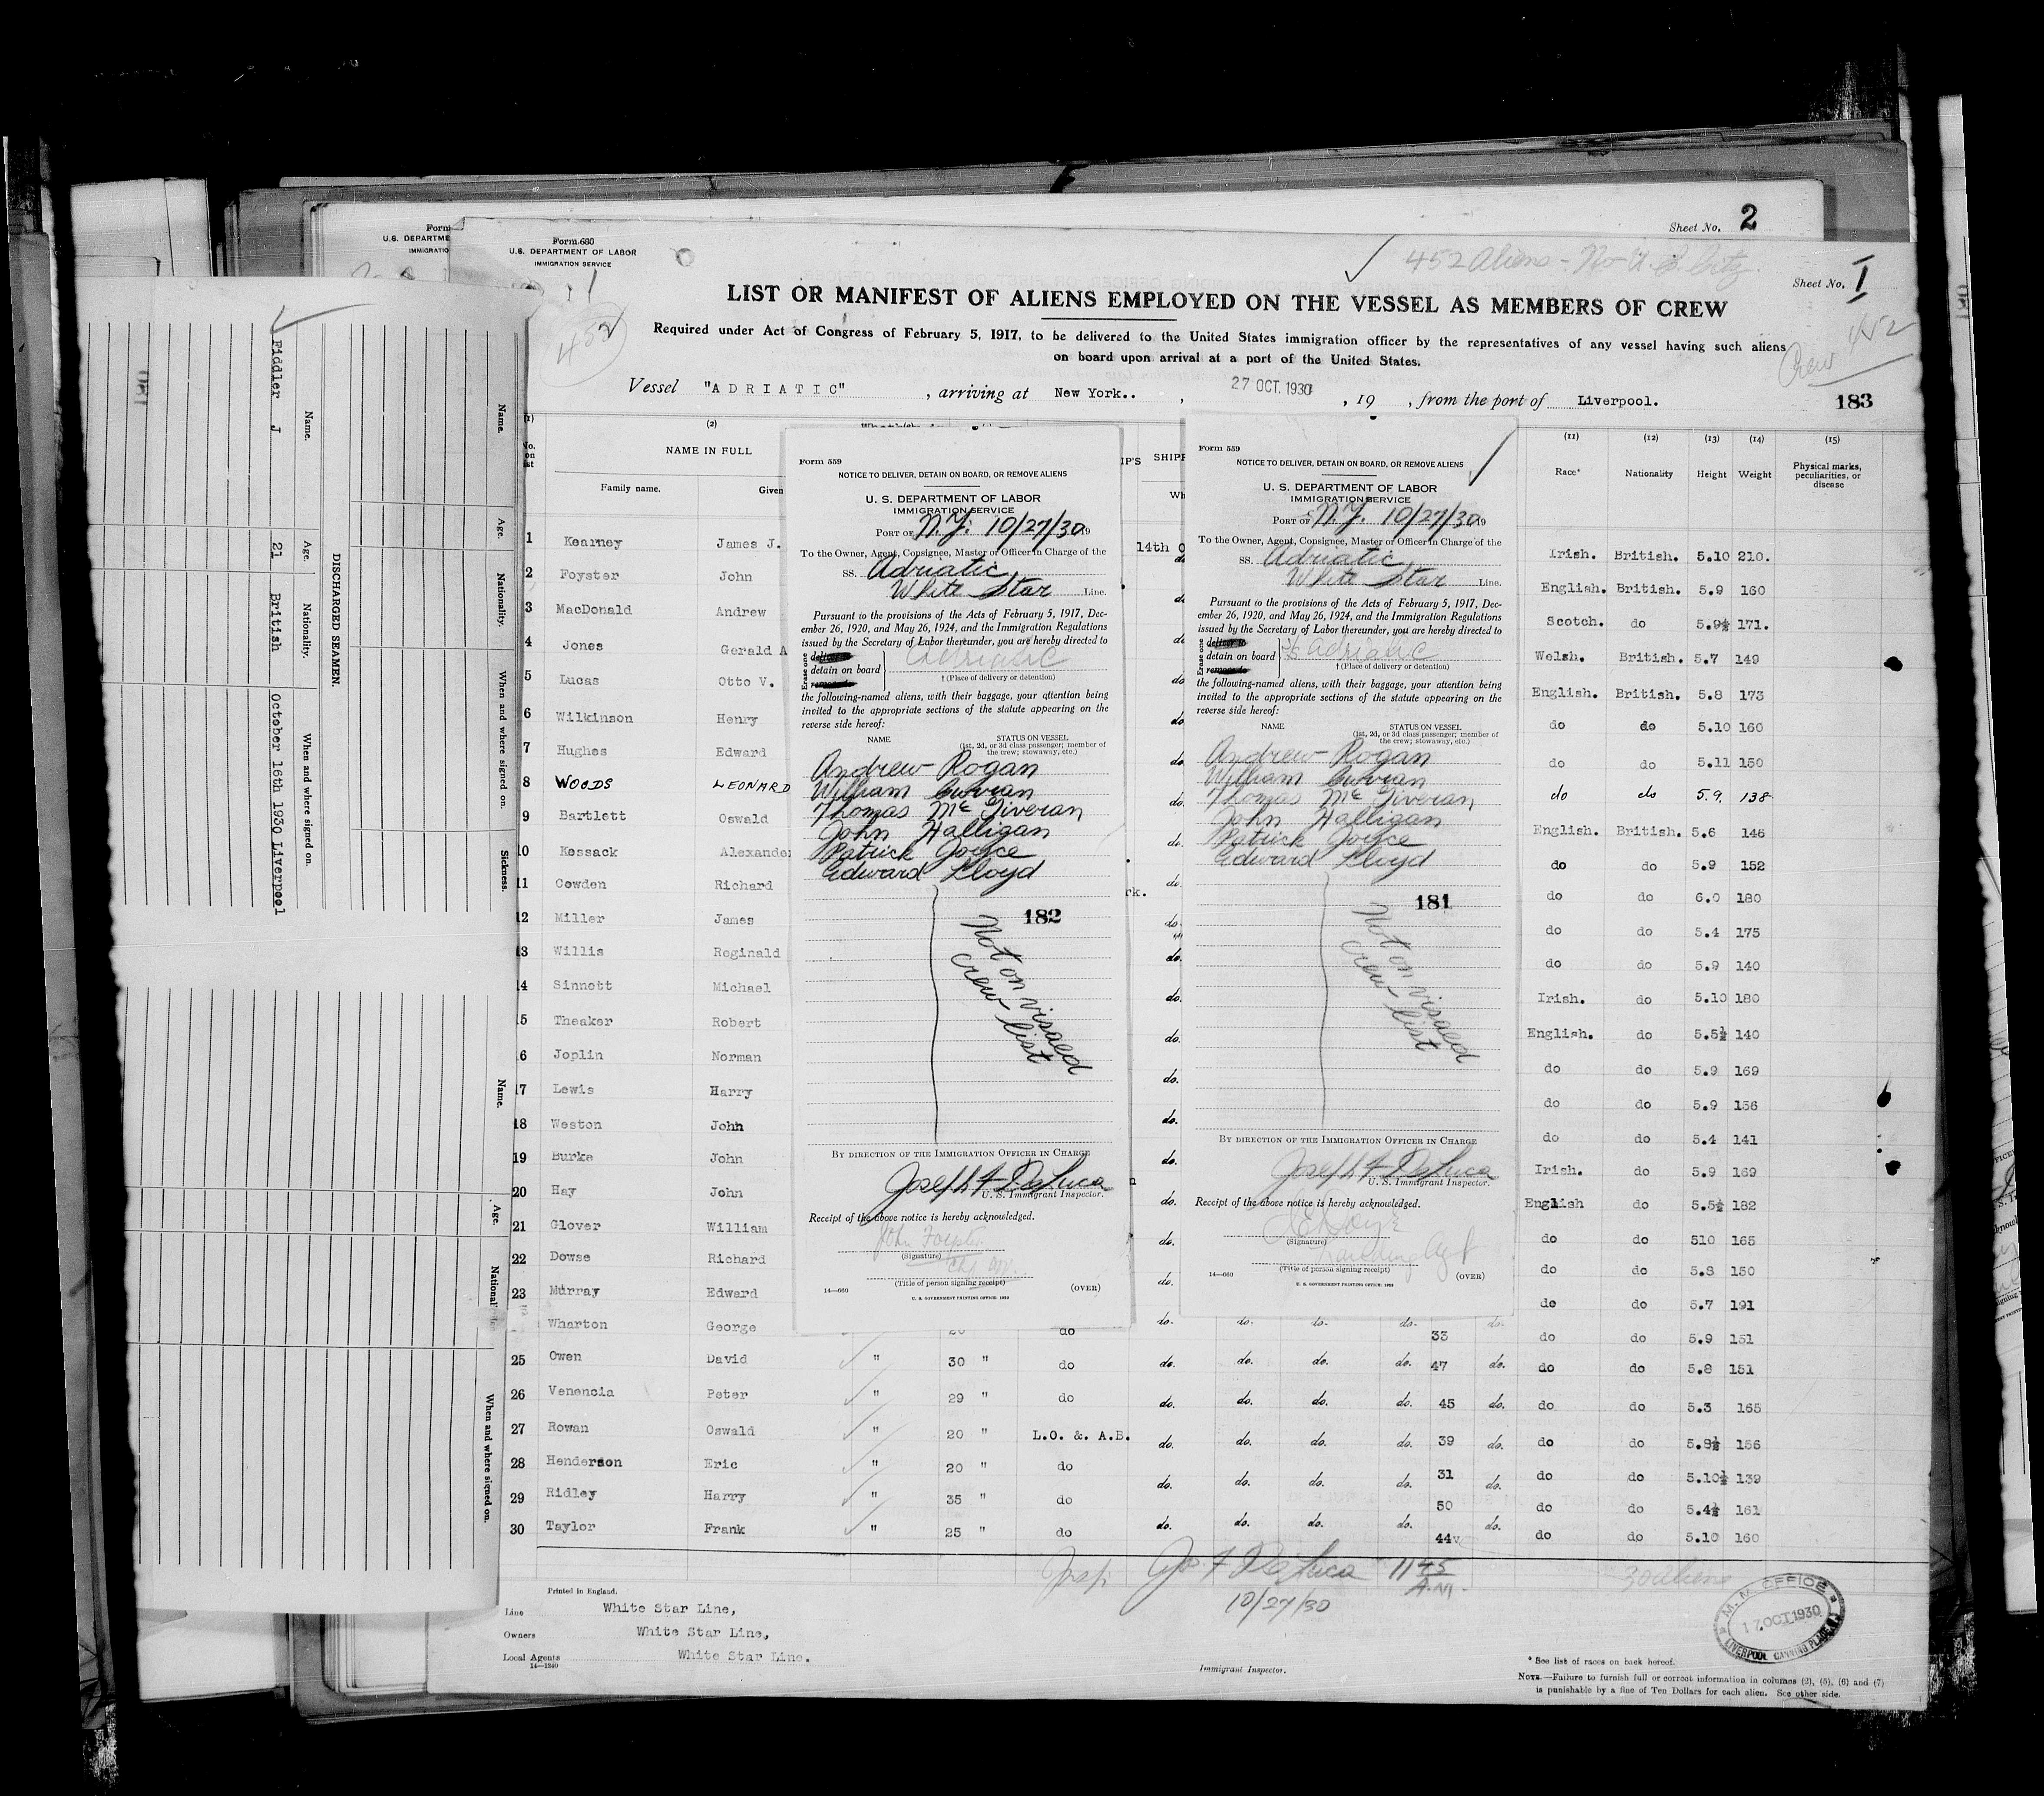 Sheet No. 2
Form
U.S. DEPARTME
IMMIGRATIO
Form 680
U. S. DEPARTMENT OF LABOR
IMMIGRATION SERVICE
452 Aliens - No U.S. Citz.
Sheet No. I
LIST OR MANIFEST OF ALIENS EMPLOYED ON THE VESSEL AS MEMBERS OF CREW
Required under Act of Congress of February 5, 1917, to be delivered to the United States immigration officer by the representatives of any vessel having such aliens
on board upon arrival at a port of the United States.
452
Crew 452
Vessel "ADRIATIC" , arriving at New York.. , 27 OCT. 1930 , 19 , from the port of Liverpool.
183
(1) (2) (11) (12) (13) (14) (15)
No. on list NAME IN FULL IP'S SHIPP Race* Nationality Height Weight Physical marks, peculiarities, or disease
Family name. Given Wh
1 Kearney James J. 14th O Irish. British. 5.10 210.
2 Foyster John do English. British. 5.9 160
3 MacDonald Andrew do Scotch. do 5.9½ 171.
4 Jones Gerald A do Welsh. British. 5.7 149
5 Lucas Otto V. do English. British. 5.8 173
6 Wilkinson Henry do. do do 5.10 160
7 Hughes Edward do. do do 5.11 150
8 WOODS LEONARD do. do do 5.9. 138
9 Bartlett Oswald do. English. British. 5.6 146
10 Kessack Alexander do. do do 5.9 152
11 Cowden Richard rk. do. do do 6.0 180
12 Miller James do. do do 5.4 175
13 Willis Reginald do. do do 5.9 140
14 Sinnott Michael do. Irish. do 5.10 180
15 Theaker Robert do. English. do 5.5½ 140
16 Joplin Norman do. do do 5.9 169
17 Lewis Harry do. do do 5.9 156
18 Weston John do. do do 5.4 141
19 Burke John do. Irish. do 5.9 169
20 Hay John do. English do 5.5½ 182
21 Glover William do. do do 510 165
22 Dowse Richard do. do do 5.8 150
23 Murray Edward do. do do 5.7 191
Wharton George do do. do. do. do. 33 do. do do 5.9 151
25 Owen David " 30 " do do. do. do. do. 47 do. do do 5.8 151
26 Venencia Peter " 29 " do do. do. do. do. 45 do. do do 5.3 165
27 Rowan Oswald " 20 " L.O. &. A.B. do. do. do. do. 39 do. do do 5.8½ 156
28 Henderson Eric " 20 " do do. do. do. do. 31 do. do do 5.10½ 139
29 Ridley Harry " 35 " do do. do. do. do. 50 do. do do 5.4½ 161
30 Taylor Frank " 25 " do do. do. do. do. 44 do. do do 5.10 160
Jos F DeLuca 11 45 A.M.
10/27/30
30 aliens
Printed in England.
Line White Star Line,
Owners White Star Line,
Local Agents White Star Line.
14—1240
Immigrant Inspector.
M. M. OFFICE
17 OCT 1930
LIVERPOOL CANNING PLACE
* See list of races on back hereof.
NOTE.—Failure to furnish full or correct information in columns (2), (5), (6) and (7)
is punishable by a fine of Ten Dollars for each alien. See other side.
Form 559
NOTICE TO DELIVER, DETAIN ON BOARD, OR REMOVE ALIENS
U. S. DEPARTMENT OF LABOR
IMMIGRATION SERVICE
PORT OF N.Y. 10/27/30 19
To the Owner, Agent, Consignee, Master or Officer in Charge of the
SS. Adriatic,
White Star Line.
Pursuant to the provisions of the Acts of February 5, 1917, Dec-
ember 26, 1920, and May 26, 1924, and the Immigration Regulations
issued by the Secretary of Labor thereunder, you are hereby directed to
Erase one
deliver
detain on board Adriatic
remove
† (Place of delivery or detention)
the following-named aliens, with their baggage, your attention being
invited to the appropriate sections of the statute appearing on the
reverse side hereof:
NAME STATUS ON VESSEL
(1st, 2d, or 3d class passenger; member of
the crew; stowaway, etc.)
Andrew Rogan
William Curran
Thomas McGiveran
John Halligan
Patrick Joyce
Edward Lloyd
182
Not on visaed
crew list
BY DIRECTION OF THE IMMIGRATION OFFICER IN CHARGE
Joseph F DeLuca
U. S. Immigrant Inspector.
Receipt of the above notice is hereby acknowledged.
John
(Signature)
(Title of person signing receipt)
14—660 (OVER)
U. S. GOVERNMENT PRINTING OFFICE: 1929
Form 559
NOTICE TO DELIVER, DETAIN ON BOARD, OR REMOVE ALIENS
U. S. DEPARTMENT OF LABOR
IMMIGRATION SERVICE
PORT OF N.Y. 10/27/30 19
To the Owner, Agent, Consignee, Master or Officer in Charge of the
SS. Adriatic,
White Star Line.
Pursuant to the provisions of the Acts of February 5, 1917, Dec-
ember 26, 1920, and May 26, 1924, and the Immigration Regulations
issued by the Secretary of Labor thereunder, you are hereby directed to
Erase one
deliver
detain on board Adriatic
remove
† (Place of delivery or detention)
the following-named aliens, with their baggage, your attention being
invited to the appropriate sections of the statute appearing on the
reverse side hereof:
NAME STATUS ON VESSEL
(1st, 2d, or 3d class passenger; member of
the crew; stowaway, etc.)
Andrew Rogan
William Curran
Thomas McGiveran
John Halligan
Patrick Joyce
Edward Lloyd
181
Not on visaed
crew list
BY DIRECTION OF THE IMMIGRATION OFFICER IN CHARGE
Joseph F DeLuca
U. S. Immigrant Inspector.
Receipt of the above notice is hereby acknowledged.
(Signature)
Landing Agt
(Title of person signing receipt)
14—660 (OVER)
U. S. GOVERNMENT PRINTING OFFICE: 1929
DISCHARGED SEAMEN.
Name. Age. Nationality. When and where signed on.
Fiddler J 21 British October 16th 1930 Liverpool
Name. Age. Nationality. When and where signed on. Sickness.
Name. Age. National When and where signed on.
180